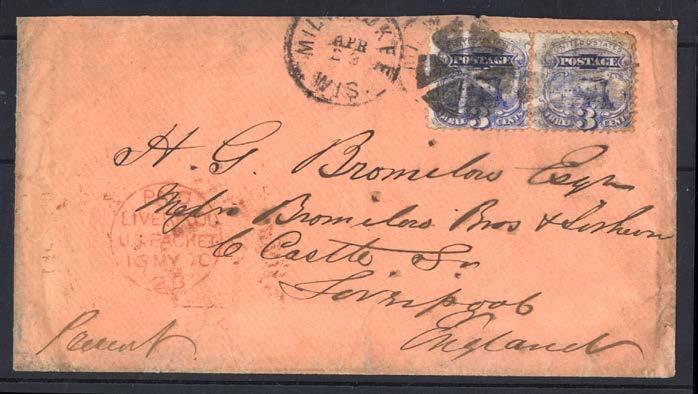 MILWAUKEE
APR
WIS.
UNITED STATES POSTAGE
THREE 3 CENTS
UNITED STATES POSTAGE
THREE 3 CENTS
H. G. Bromilow Esqr
Messrs Bromilow Bros &
6 Castle St
Liverpool
England
PAID
LIVERPOOL
U.S. PACKET
MY 70
2B